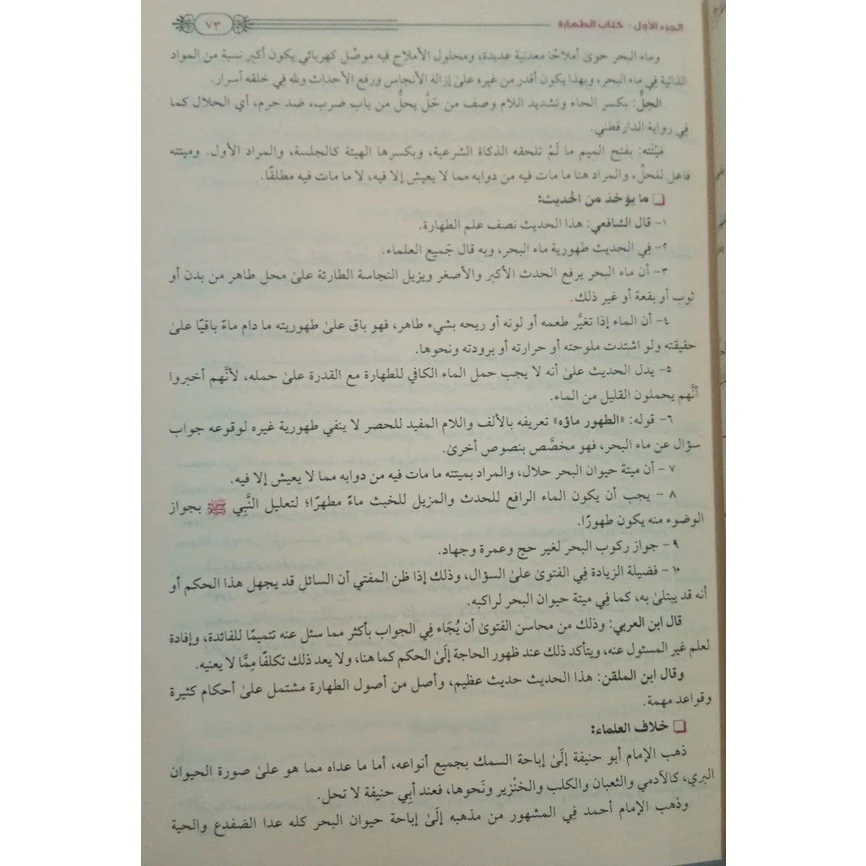 الجزء الأول - كتاب الطهارة
٧٣
وماء البحر حوىٰ أملاحًا معدنية عديدة، ومحلول الأملاح فيه موصِّل كهربائي يكون أكبر نسبة من المواد
الذائبة فِي ماء البحر، وبهذا يكون أقدر من غيره علىٰ إزالة الأنجاس ورفع الأحداث ولله فِي خلقه أسرار.
الحِلُّ: بكسر الحاء وتشديد اللام وصف من حَلَّ يحلُّ من باب ضرب، ضد حرم، أي الحلال كما
فِي رواية الدارقطني.
مَيْتَته: بفتح الميم ما لَمْ تلحقه الذكاة الشرعية، وبكسرها الهيئة كالجلسة، والمراد الأول. وميتته
فاعل للحلِّ، والمراد هنا ما مات فيه من دوابه مما لا يعيش إلا فيه، لا ما مات فيه مطلقًا.
❏ ما يؤخذ من الحديث:
١- قال الشافعي: هذا الحديث نصف علم الطهارة.
٢- فِي الحديث طهورية ماء البحر، وبه قال جَميع العلماء.
٣- أن ماء البحر يرفع الحدث الأكبر والأصغر ويزيل النجاسة الطارئة علىٰ محل طاهر من بدن أو
ثوب أو بقعة أو غير ذلك.
٤- أن الماء إذا تغيَّر طعمه أو لونه أو ريحه بشيء طاهر، فهو باق علىٰ طهوريته ما دام ماءً باقيًا علىٰ
حقيقته ولو اشتدت ملوحته أو حرارته أو برودته ونحوها.
٥- يدل الحديث علىٰ أنه لا يجب حمل الماء الكافي للطهارة مع القدرة علىٰ حمله، لأنَّهم أخبروا
أنَّهم يحملون القليل من الماء.
٦- قوله: «الطهور ماؤه» تعريفه بالألف واللام المفيد للحصر لا ينفي طهورية غيره لوقوعه جواب
سؤال عن ماء البحر، فهو مخصَّص بنصوص أخرىٰ.
٧ - أن ميتة حيوان البحر حلال، والمراد بميتته ما مات فيه من دوابه مما لا يعيش إلا فيه.
٨ - يجب أن يكون الماء الرافع للحدث والمزيل للخبث ماءً مطهرًا؛ لتعليل النَّبِي ﷺ بجواز
الوضوء منه يكون طهورًا.
٩ - جواز ركوب البحر لغير حج وعمرة وجهاد.
١٠ - فضيلة الزيادة فِي الفتوىٰ علىٰ السؤال، وذلك إذا ظن المفتي أن السائل قد يجهل هذا الحكم أو
أنه قد يبتلىٰ به، كما فِي ميتة حيوان البحر لراكبه.
قال ابن العربي: وذلك من محاسن الفتوىٰ أن يُجَاء فِي الجواب بأكثر مما سئل عنه تتميمًا للفائدة، وإفادة
لعلم غير المسئول عنه، ويتأكد ذلك عند ظهور الحاجة إلَىٰ الحكم كما هنا، ولا يعد ذلك تكلفًا مِمَّا لا يعنيه.
وقال ابن الملقن: هذا الحديث حديث عظيم، وأصل من أصول الطهارة مشتمل علىٰ أحكام كثيرة
وقواعد مهمة.
❏ خلاف العلماء:
ذهب الإمام أبو حنيفة إلَىٰ إباحة السمك بجميع أنواعه، أما ما عداه مما هو علىٰ صورة الحيوان
البري، كالآدمي والثعبان والكلب والخنْزير ونَحوها، فعند أبِي حنيفة لا تحل.
وذهب الإمام أحمد فِي المشهور من مذهبه إلَىٰ إباحة حيوان البحر كله عدا الضفدع والحية